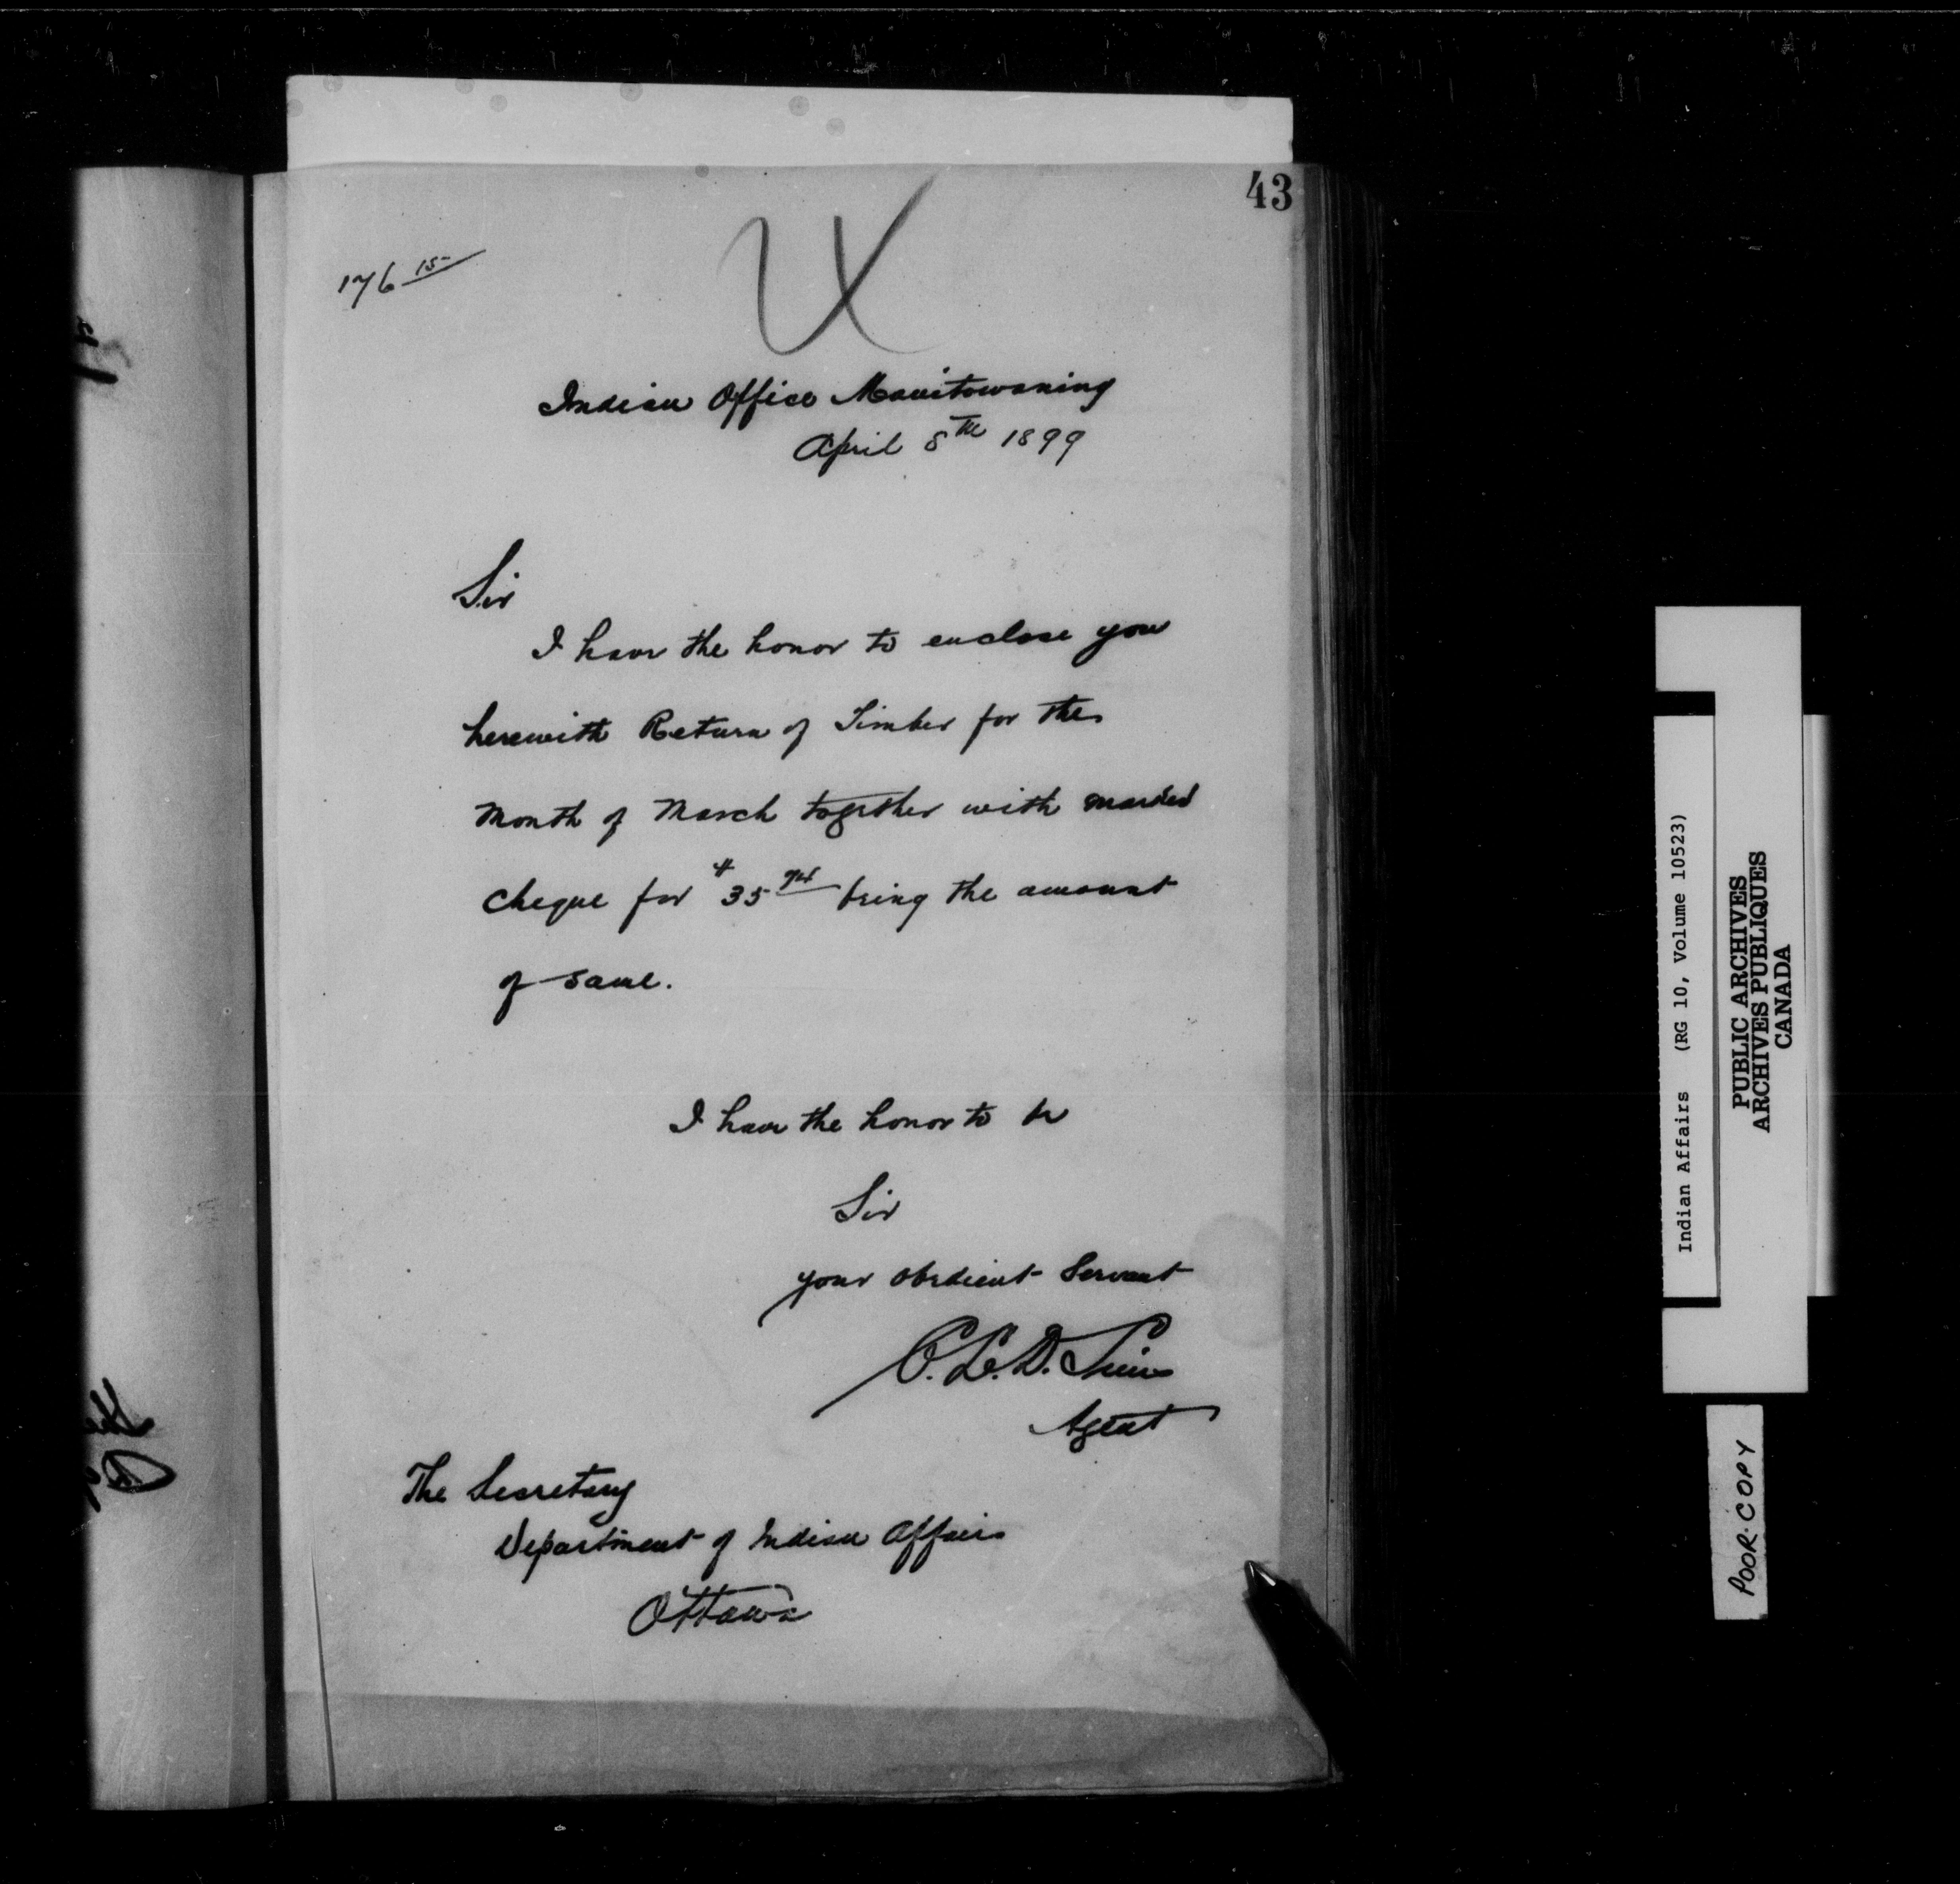 43
176 15
Indian Office Manitowaning
April 8th 1899
Sir
I have the honor to enclose you
herewith Return of Timber for the
Month of March together with marked
cheque for $35 74 being the amount
of same.
I have the honor to be
Sir
your obedient Servant
B. L. D. Sims
Agent
The Secretary
Department of Indian Affairs
Ottawa
Indian Affairs (RG 10, Volume 10523)
PUBLIC ARCHIVES
ARCHIVES PUBLIQUES
CANADA
POOR COPY